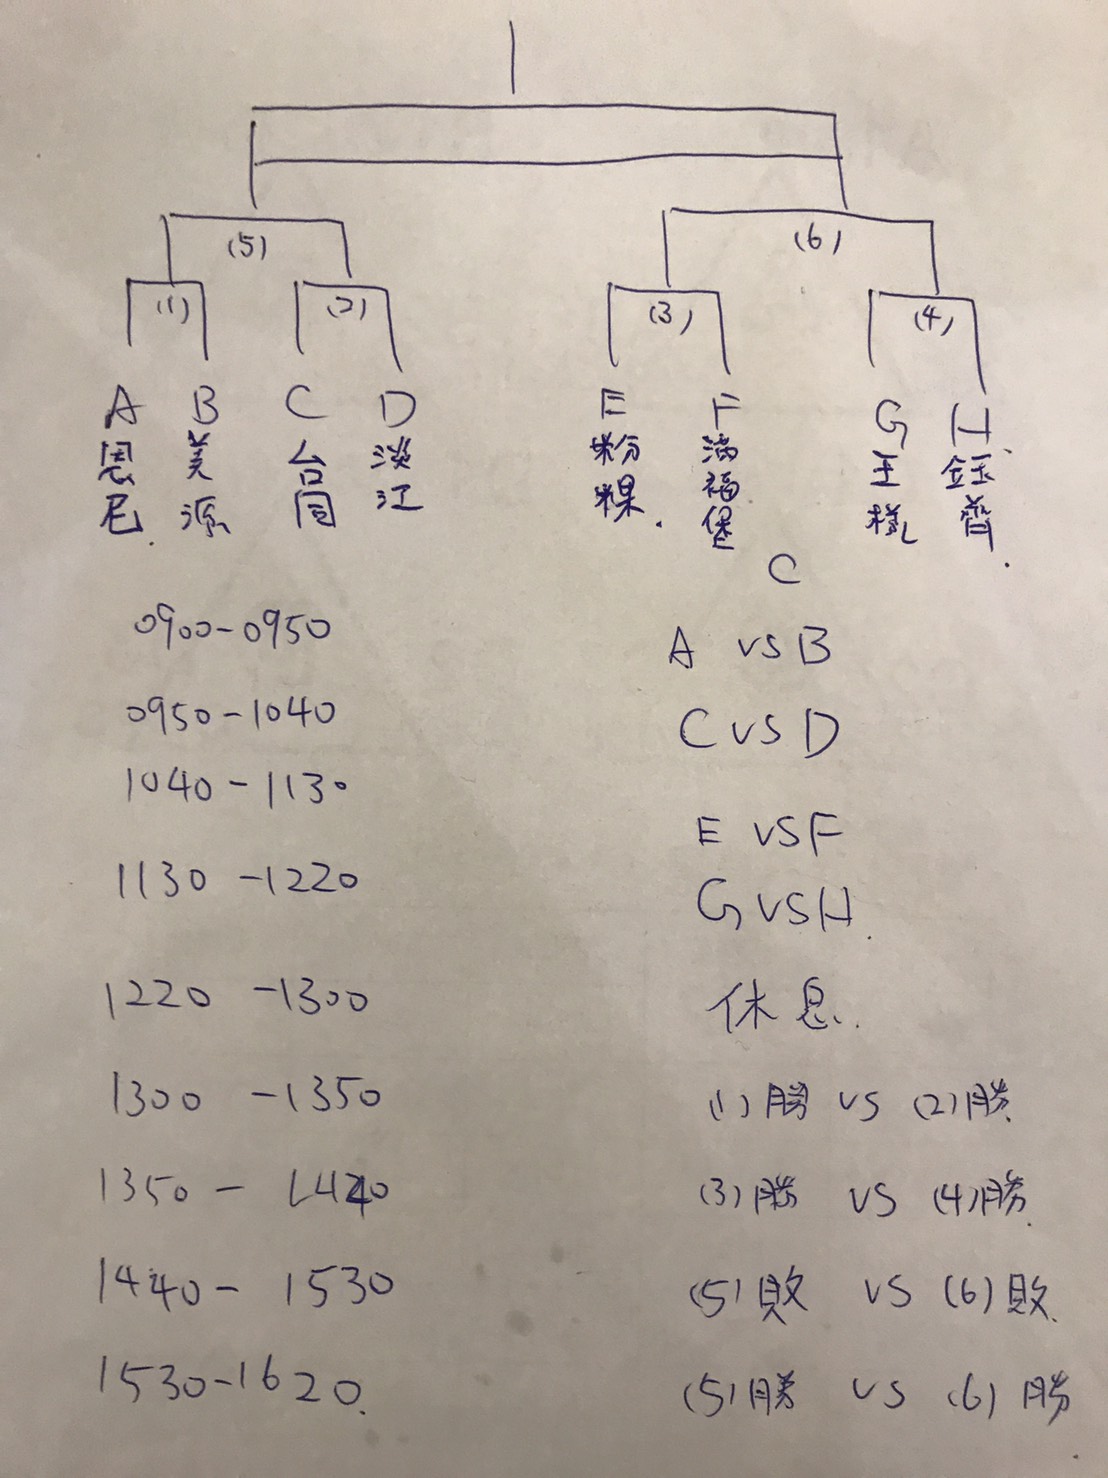 (5) (6)
(1) (2) (3) (4)
A B C D E F G H
恩尼
美源
台固
淡江
粉粿
滿福堡
王樣
鈺齊
C
0900-0950 A vs B
0950-1040 C vs D
1040-1130 E vs F
1130-1220 G vs H
1220-1300 休息
1300-1350 (1)勝 vs (2)勝
1350-1440 (3)勝 vs (4)勝
1440-1530 (5)敗 vs (6)敗
1530-1620 (5)勝 vs (6)勝